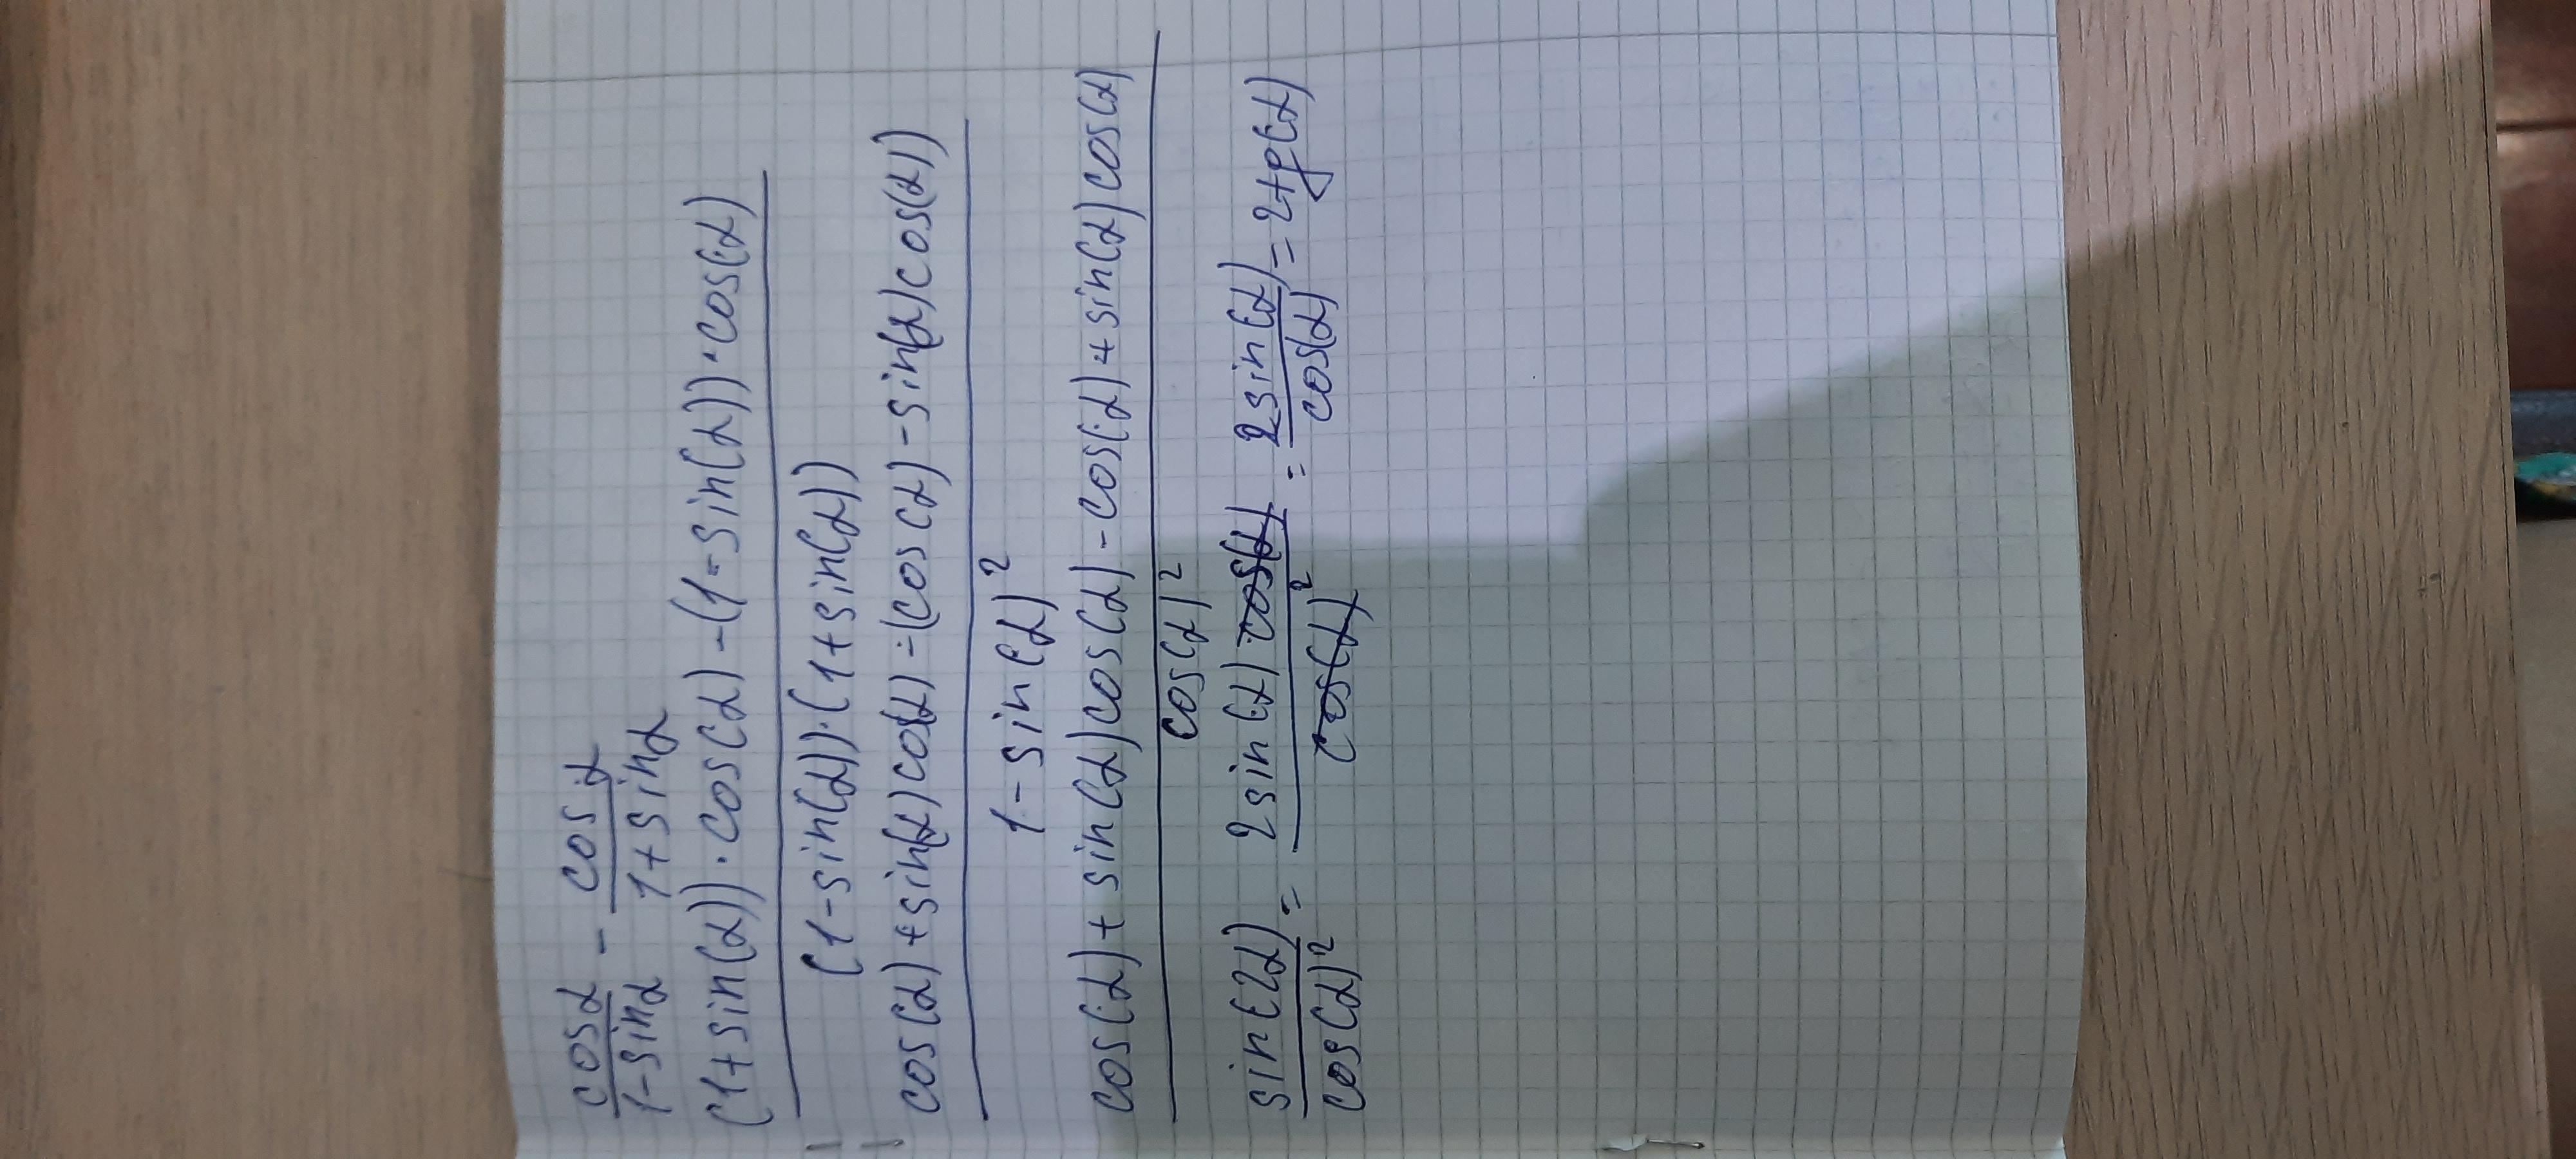 cosα/1-sinα - cosα/1+sinα
(1+sin(α))·cos(α)-(1-sin(α))·cos(α)
(1-sin(α))·(1+sin(α))
cos(α)+sin(α)cos(α)-(cos(α)-sin(α)cos(α))
1-sin(α)²
cos(α)+sin(α)cos(α)-cos(α)+sin(α)cos(α)
cos(α)²
sin(2α)/cos(α)² = 2sin(α)cos(α)/cos(α)² = 2sin(α)/cos(α) = 2tg(α)